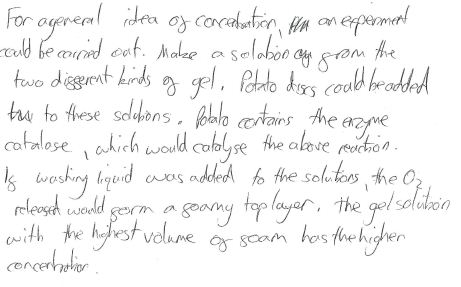 For a general idea of concentration, an experiment
could be carried out. Make a solution from the
two different kinds of gel. Potato discs could be added
to these solutions. Potato contains the enzyme
catalase, which would catalyse the above reaction.
If washing liquid was added to the solutions, the O2
released would form a foamy top layer. The gel solution
with the highest volume of foam has the higher
concentration.